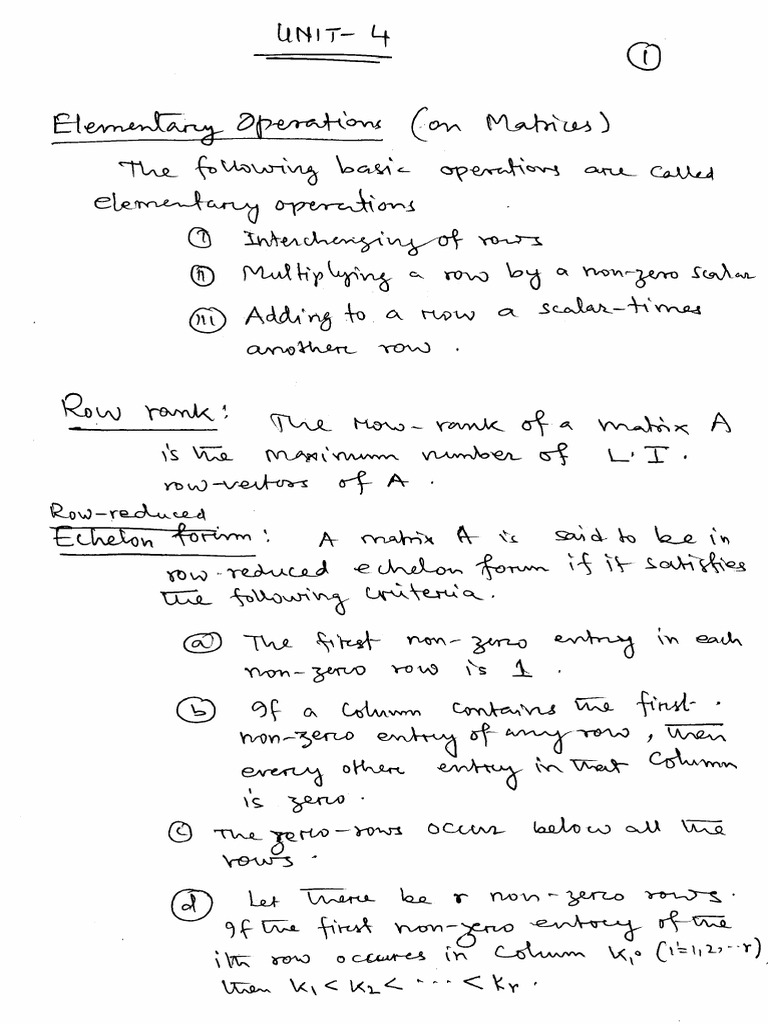 UNIT-4
①
Elementary Operations (on Matrices)
The following basic operations are called
elementary operations
(i) Interchanging of rows
(ii) Multiplying a row by a non-zero scalar
(iii) Adding to a row a scalar-times
another row.
Row rank: The row-rank of a matrix A
is the maximum number of L.I.
row-vectors of A.
Row-reduced
Echelon form: A matrix A is said to be in
row-reduced echelon form if it satisfies
the following criteria.
(a) The first non-zero entry in each
non-zero row is 1.
(b) If a column contains the first
non-zero entry of any row, then
every other entry in that column
is zero.
(c) The zero-rows occur below all the
rows.
(d) Let there be r non-zero rows.
If the first non-zero entry of the
ith row occures in column Ki (i=1,2,...r),
then K₁ < K₂ < ... < Kr.